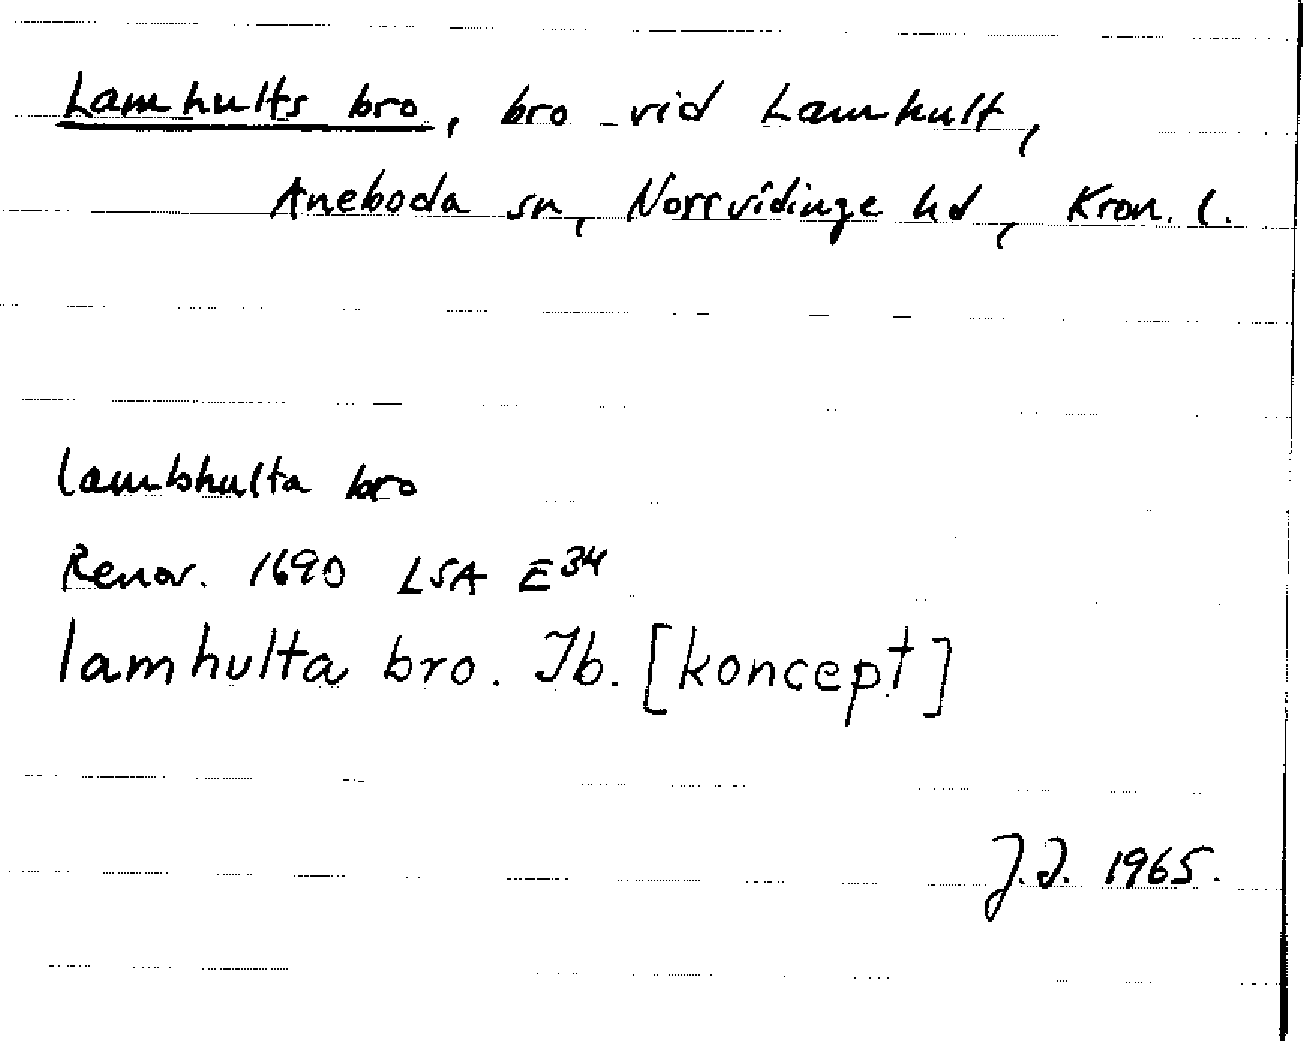 Lamhults bro, bro vid Lamhult,
Aneboda sn, Norrvidinge hd, Kron. l.
lambhulta bro
Renov. 1690 LSA E34
lamhulta bro. Ib. [koncept]
J.I. 1965.